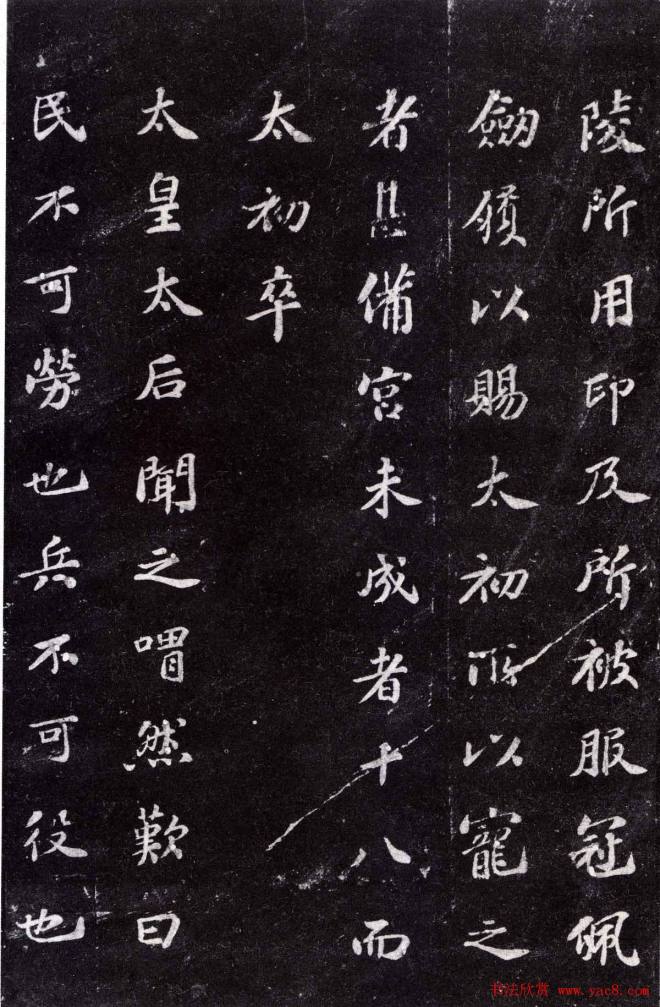 陵所用印及所被服冠佩
劔履以賜太初所以寵之
者甚備宮未成者十八而
太初卒
太皇太后聞之喟然歎曰
民不可勞也兵不可役也
书法欣赏 www.yac8.com